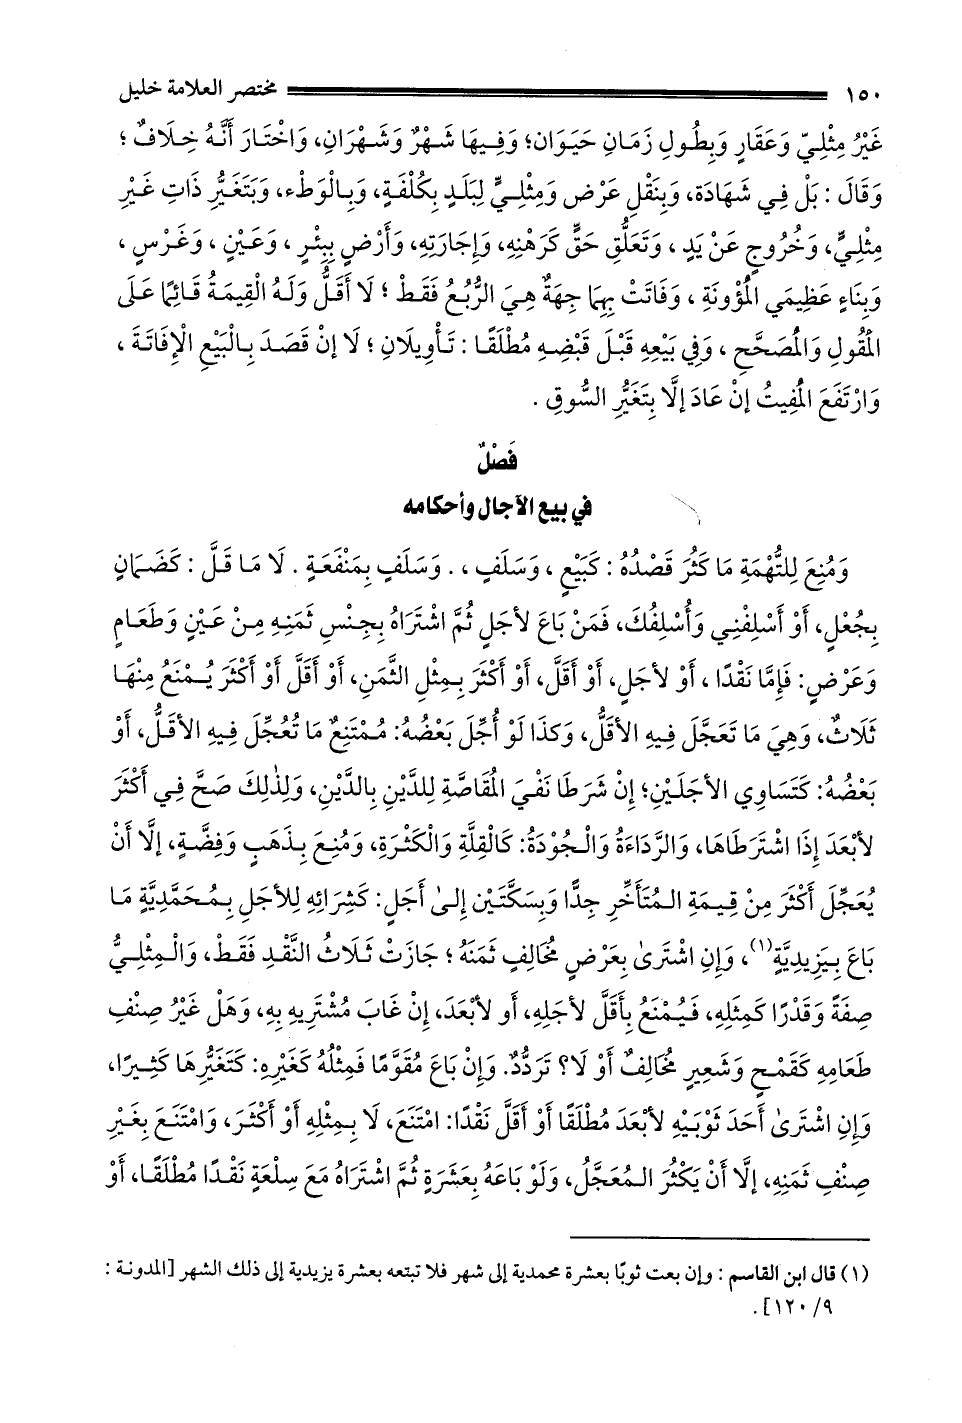 ١٥٠ مختصر العلامة خليل
غَيْرُ مِثْلِيٍّ وَعَقَارٍ وَبِطُولِ زَمَانِ حَيَوَانٍ؛ وَفِيهَا شَهْرٌ وَشَهْرَانِ، وَاخْتَارَ أَنَّهُ خِلَافٌ ؛
وَقَالَ : بَلْ فِي شَهَادَة، وَبِنَقْلِ عَرْضٍ وَمِثْلِيٍّ لِبَلَدٍ بِكُلْفَةٍ، وَبِالْوَطْءِ، وَبَتَغَيُّرِ ذَاتِ غَيْرِ
مِثْلِيٍّ، وَخُرُوجٍ عَنْ يَدٍ ، وَتَعَلُّقِ حَقٍّ كَرَهْنِهِ، وَإِجَارَتِهِ، وَأَرْضٍ بِبِئْرٍ ، وَعَيْنٍ ، وَغَرْسٍ ،
وَبِنَاءٍ عَظِيمَيِ الْمُؤُونَةِ ، وَفَاتَتْ بِهِمَا جِهَةٌ هِيَ الرُّبُعُ فَقَطْ ؛ لَا أَقَلُّ وَلَهُ الْقِيمَةُ قَائِمًا عَلَى
الْمَقُولِ وَالْمُصَحَّحِ ، وَفِي بَيْعِهِ قَبْلَ قَبْضِهِ مُطْلَقًا : تَأْوِيلَانِ ؛ لَا إِنْ قَصَدَ بِالْبَيْعِ الْإِفَاتَةَ ،
وَارْتَفَعَ الْمُفِيتُ إِنْ عَادَ إِلَّا بِتَغَيُّرِ السُّوقِ .
فَصْلٌ
في بيع الآجال وأحكامه
وَمُنِعَ لِلتُّهْمَةِ مَا كَثُرَ قَصْدُهُ : كَبَيْعٍ ، وَسَلَفٍ ، . وَسَلَفٍ بِمَنْفَعَةٍ . لَا مَا قَلَّ : كَضَمَانٍ
بِجُعْلٍ، أَوْ أَسْلِفْنِي وَأُسْلِفُكَ، فَمَنْ بَاعَ لأَجَلٍ ثُمَّ اشْتَرَاهُ بِجِنْسِ ثَمَنِهِ مِنْ عَيْنٍ وَطَعَامٍ
وَعَرْضٍ: فَإِمَّا نَقْدًا ، أَو لأَجَلٍ، أَوْ أَقَلَّ، أَوْ أَكْثَرَ بِمِثْلِ الثَّمَنِ، أَوْ أَقَلَّ أَوْ أَكْثَرَ يُمْنَعُ مِنْهَا
ثَلَاثٌ، وَهِيَ مَا تَعَجَّلَ فِيهِ الأَقَلُّ، وَكَذَا لَوْ أُجِّلَ بَعْضُهُ: مُمْتَنِعٌ مَا تُعُجِّلَ فِيهِ الأَقَلُّ، أَوْ
بَعْضُهُ: كَتَسَاوِي الأَجَلَيْنِ؛ إِنْ شَرَطَا نَفْيَ الْمُقَاصَّةِ لِلدَّيْنِ بِالدَّيْنِ، وَلِذٰلِكَ صَحَّ فِي أَكْثَرَ
لأَبْعَدَ إِذَا اشْتَرَطَاهَا، وَالرَّدَاءَةُ وَالْجُودَةُ: كَالْقِلَّةِ وَالْكَثْرَةِ، وَمُنِعَ بِذَهَبٍ وَفِضَّةٍ، إِلَّا أَنْ
يُعَجَّلَ أَكْثَرَ مِنْ قِيمَةِ الْمُتَأَخِّرِ جِدًّا وَبِسَكَّتَيْنِ إِلىٰ أَجَلٍ: كَشِرَائِهِ لِلأَجَلِ بِمُحَمَّدِيَّةٍ مَا
بَاعَ بِيَزِيدِيَّةٍ(١)، وَإِنِ اشْتَرىٰ بِعَرْضٍ مُخَالِفٍ ثَمَنَهُ ؛ جَازَتْ ثَلَاثُ النَّقْدِ فَقَطْ، وَالْمِثْلِيُّ
صِفَةً وَقَدْرًا كَمِثْلِهِ، فَيُمْنَعُ بِأَقَلَّ لأَجَلِهِ، أَو لأَبْعَدَ، إِنْ غَابَ مُشْتَرِيهِ بِهِ، وَهَلْ غَيْرُ صِنْفِ
طَعَامِهِ كَقَمْحٍ وَشَعِيرٍ مُخَالِفٌ أَوْ لَا؟ تَرَدُّدٌ. وَإِنْ بَاعَ مُقَوَّمًا فَمِثْلُهُ كَغَيْرِهِ: كَتَغَيُّرِهَا كَثِيرًا،
وَإِنِ اشْتَرىٰ أَحَدَ ثَوْبَيْهِ لأَبْعَدَ مُطْلَقًا أَوْ أَقَلَّ نَقْدًا: امْتَنَعَ، لَا بِمِثْلِهِ أَوْ أَكْثَرَ، وَامْتَنَعَ بِغَيْرِ
صِنْفِ ثَمَنِهِ، إِلَّا أَنْ يَكْثُرَ الْمُعَجَّلُ، وَلَوْ بَاعَهُ بِعَشَرَةٍ ثُمَّ اشْتَرَاهُ مَعَ سِلْعَةٍ نَقْدًا مُطْلَقًا، أَوْ
(١) قال ابن القاسم : وإن بعت ثوبًا بعشرة محمدية إلى شهر فلا تبتعه بعشرة يزيدية إلى ذلك الشهر [المدونة :
٩/ ١٢٠].